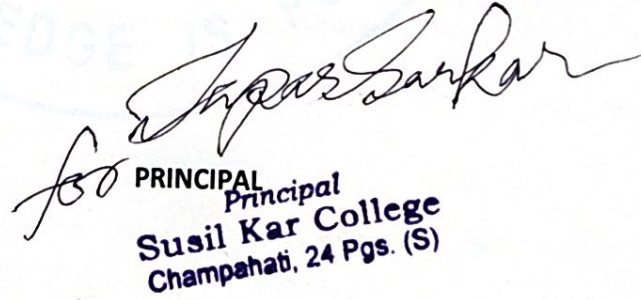 EDGE IS
Tapas Sarkar
for PRINCIPAL
Principal
Susil Kar College
Champahati, 24 Pgs. (S)